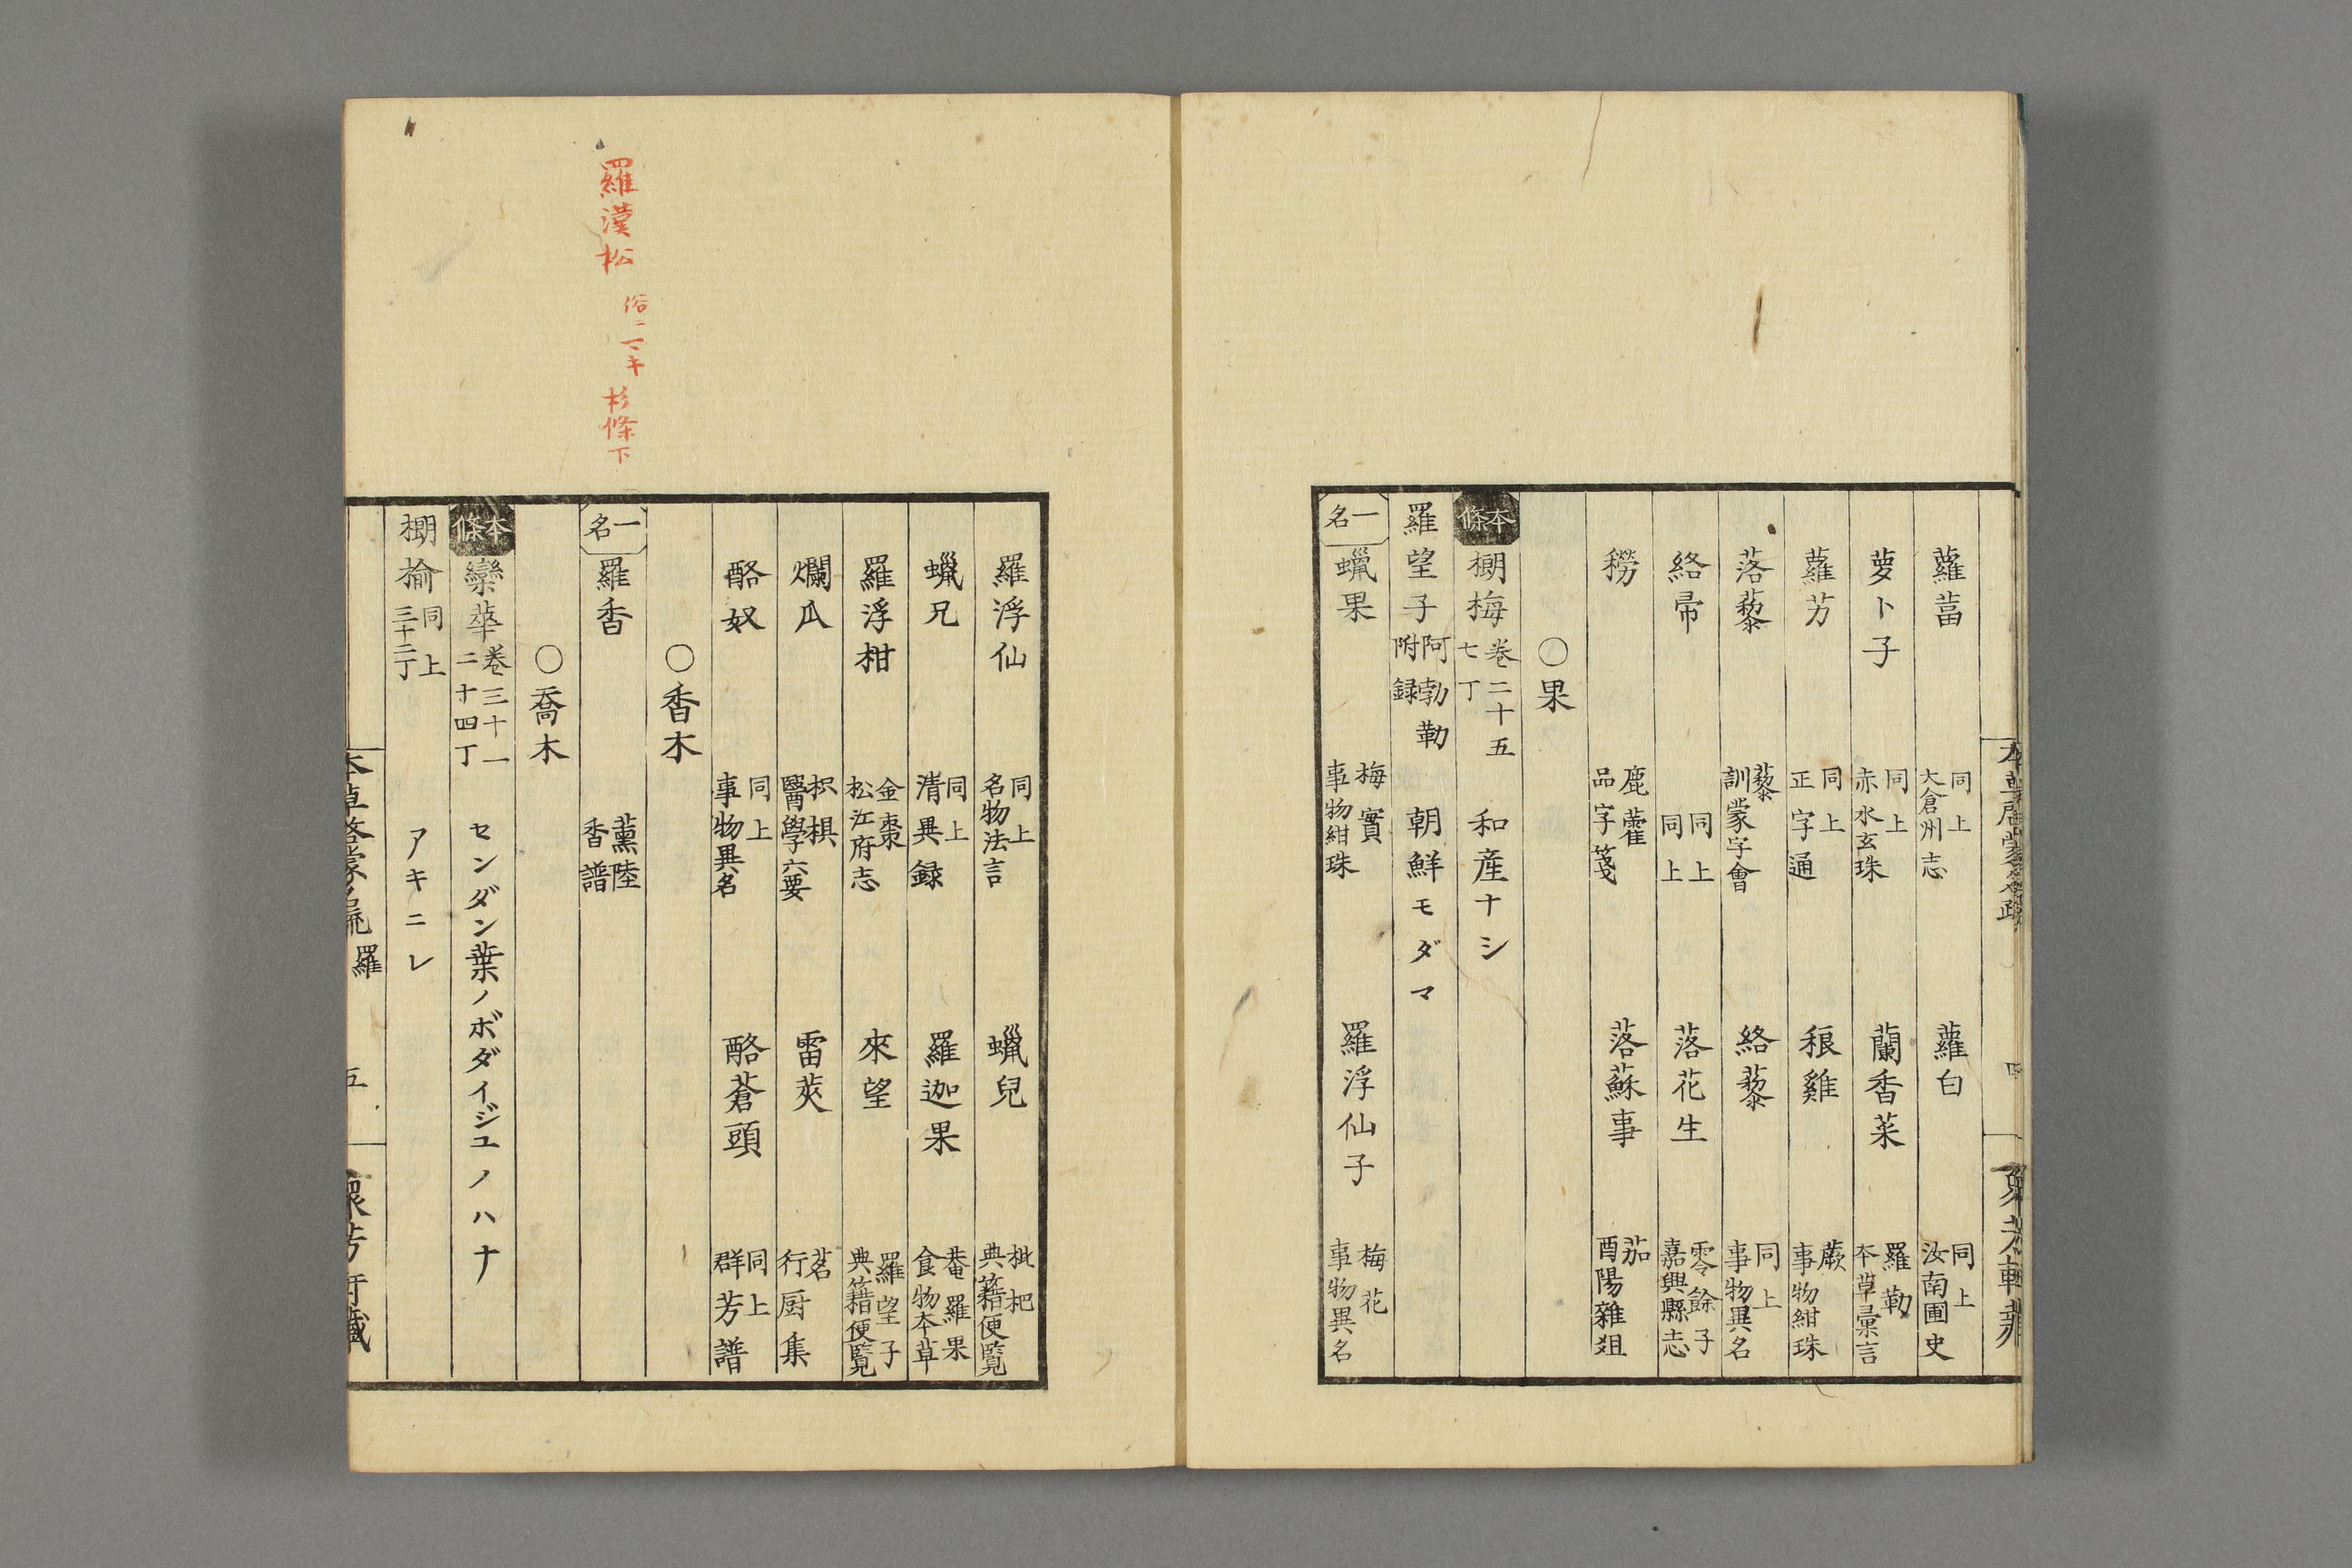 蘿葍 同上 大倉州志 蘿白 同上 汝南圃史
萝卜子 同上 赤水玄珠 蘭香菜 羅勒 本草彙言
蘿艻 同上 正字通 稂雞 蕨 事物紺珠
落藜 藜 訓蒙字會 絡藜 同上 事物異名
絡帚 同上 同上 落花生 零餘子 嘉興縣志
鹿藿 品字箋 落蘇事 茄 酉陽雜俎
〇果
本條 棚梅 卷二十五 七丁 和産ナシ
羅望子 阿勃勒 附録 朝鮮モダマ
一名 蝋果 梅實 事物紺珠 羅浮仙子 梅花 事物異名
羅浮仙 同上 名物法言 蝋兒 枇杷 典籍便覧
蝋兄 同上 清異録 羅迦果 菴羅果 食物本草
羅浮柑 金棗 松江府志 來望 羅望子 典籍便覧
爛瓜 枳椇 醫學六要 雷莢 茗 行厨集
酪奴 同上 事物異名 酪蒼頭 同上 群芳譜
〇香木
一名 羅香 薫陸 香譜
〇喬木
本條 欒華 卷三十一 二十四丁 センダン葉ノボダイジユノハナ
棚榆 同上 三十二丁 アキニレ
羅 五
羅漢松 俗ニマキ 杉條下